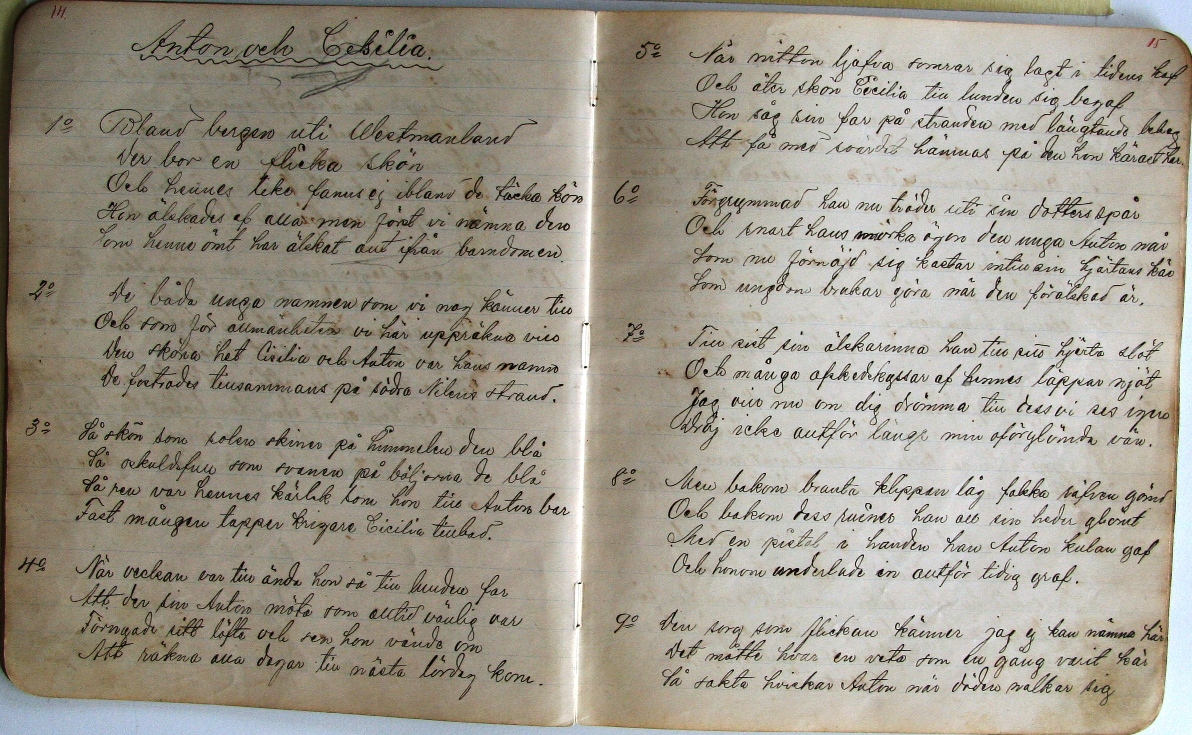 14.
Anton och Cesilia.
1o Bland bergen uti Westmanland
Der bor en flicka skön
Och hennes like fanns ej ibland de täcka kön
Hon älskades af alla men först vi nämna den
Som henne ömt har älskat allt ifrån barndomen.
2o De båda unga namnen som vi nog känner till
Och som för allmänheten vi här uppräkna vill
Den sköna het Cisilia och Anton var hans namn
De fostrades tillsammans på södra Nilens strand.
3o Så skön som solen skiner på himmelen den blå
Så oskuldsfull som svanen på böljorna de blå
Så ren var hennes kärlek som hon till Anton bar
Fast mången tapper krigare Cicilia tillbad.
4o När veckan var till ända hon så till lunden far
Att der sin Anton möta som alltid vänlig var
Förnyade sitt löfte och sen hon vände om
Att räkna alla dagar till nästa lördag kom.
15
5o När nitton ljufva somrar sig lagt i tidens haf
Och åter skön Cicilia till lunden sig begaf
Hon såg sin far på stranden med längtande behag
Att få med svärdet hämnas på den hon kärast har.
6o Förgrymmad han nu träder uti sin dotters spår
Och snart hans mörka ögon den unga Anton når
Som nu förnöjd sig kastar intill sin hjärtans kär
Som ungdom brukar göra när den förälskad är.
7o Till sist sin älskarinna han till sitt hjerta slöt
Och många afskedskyssar af hennes läppar njöt
Jag vill nu om dig drömma till dess vi ses igen
Dröj icke alltför länge min oförglömda vän.
8o Men bakom branta klippan låg falska ulfven gömd
Och bakom dess ruiner han all sin heder glömt
Med en pistol i handen han Anton kulan gaf
Och honom underlade en alltför tidig graf.
9o Den sorg som flickan känner jag ej kan nämna här
Det måtte hvar en veta som en gång varit kär
Så sakta hviskar Anton när döden nalkar sig